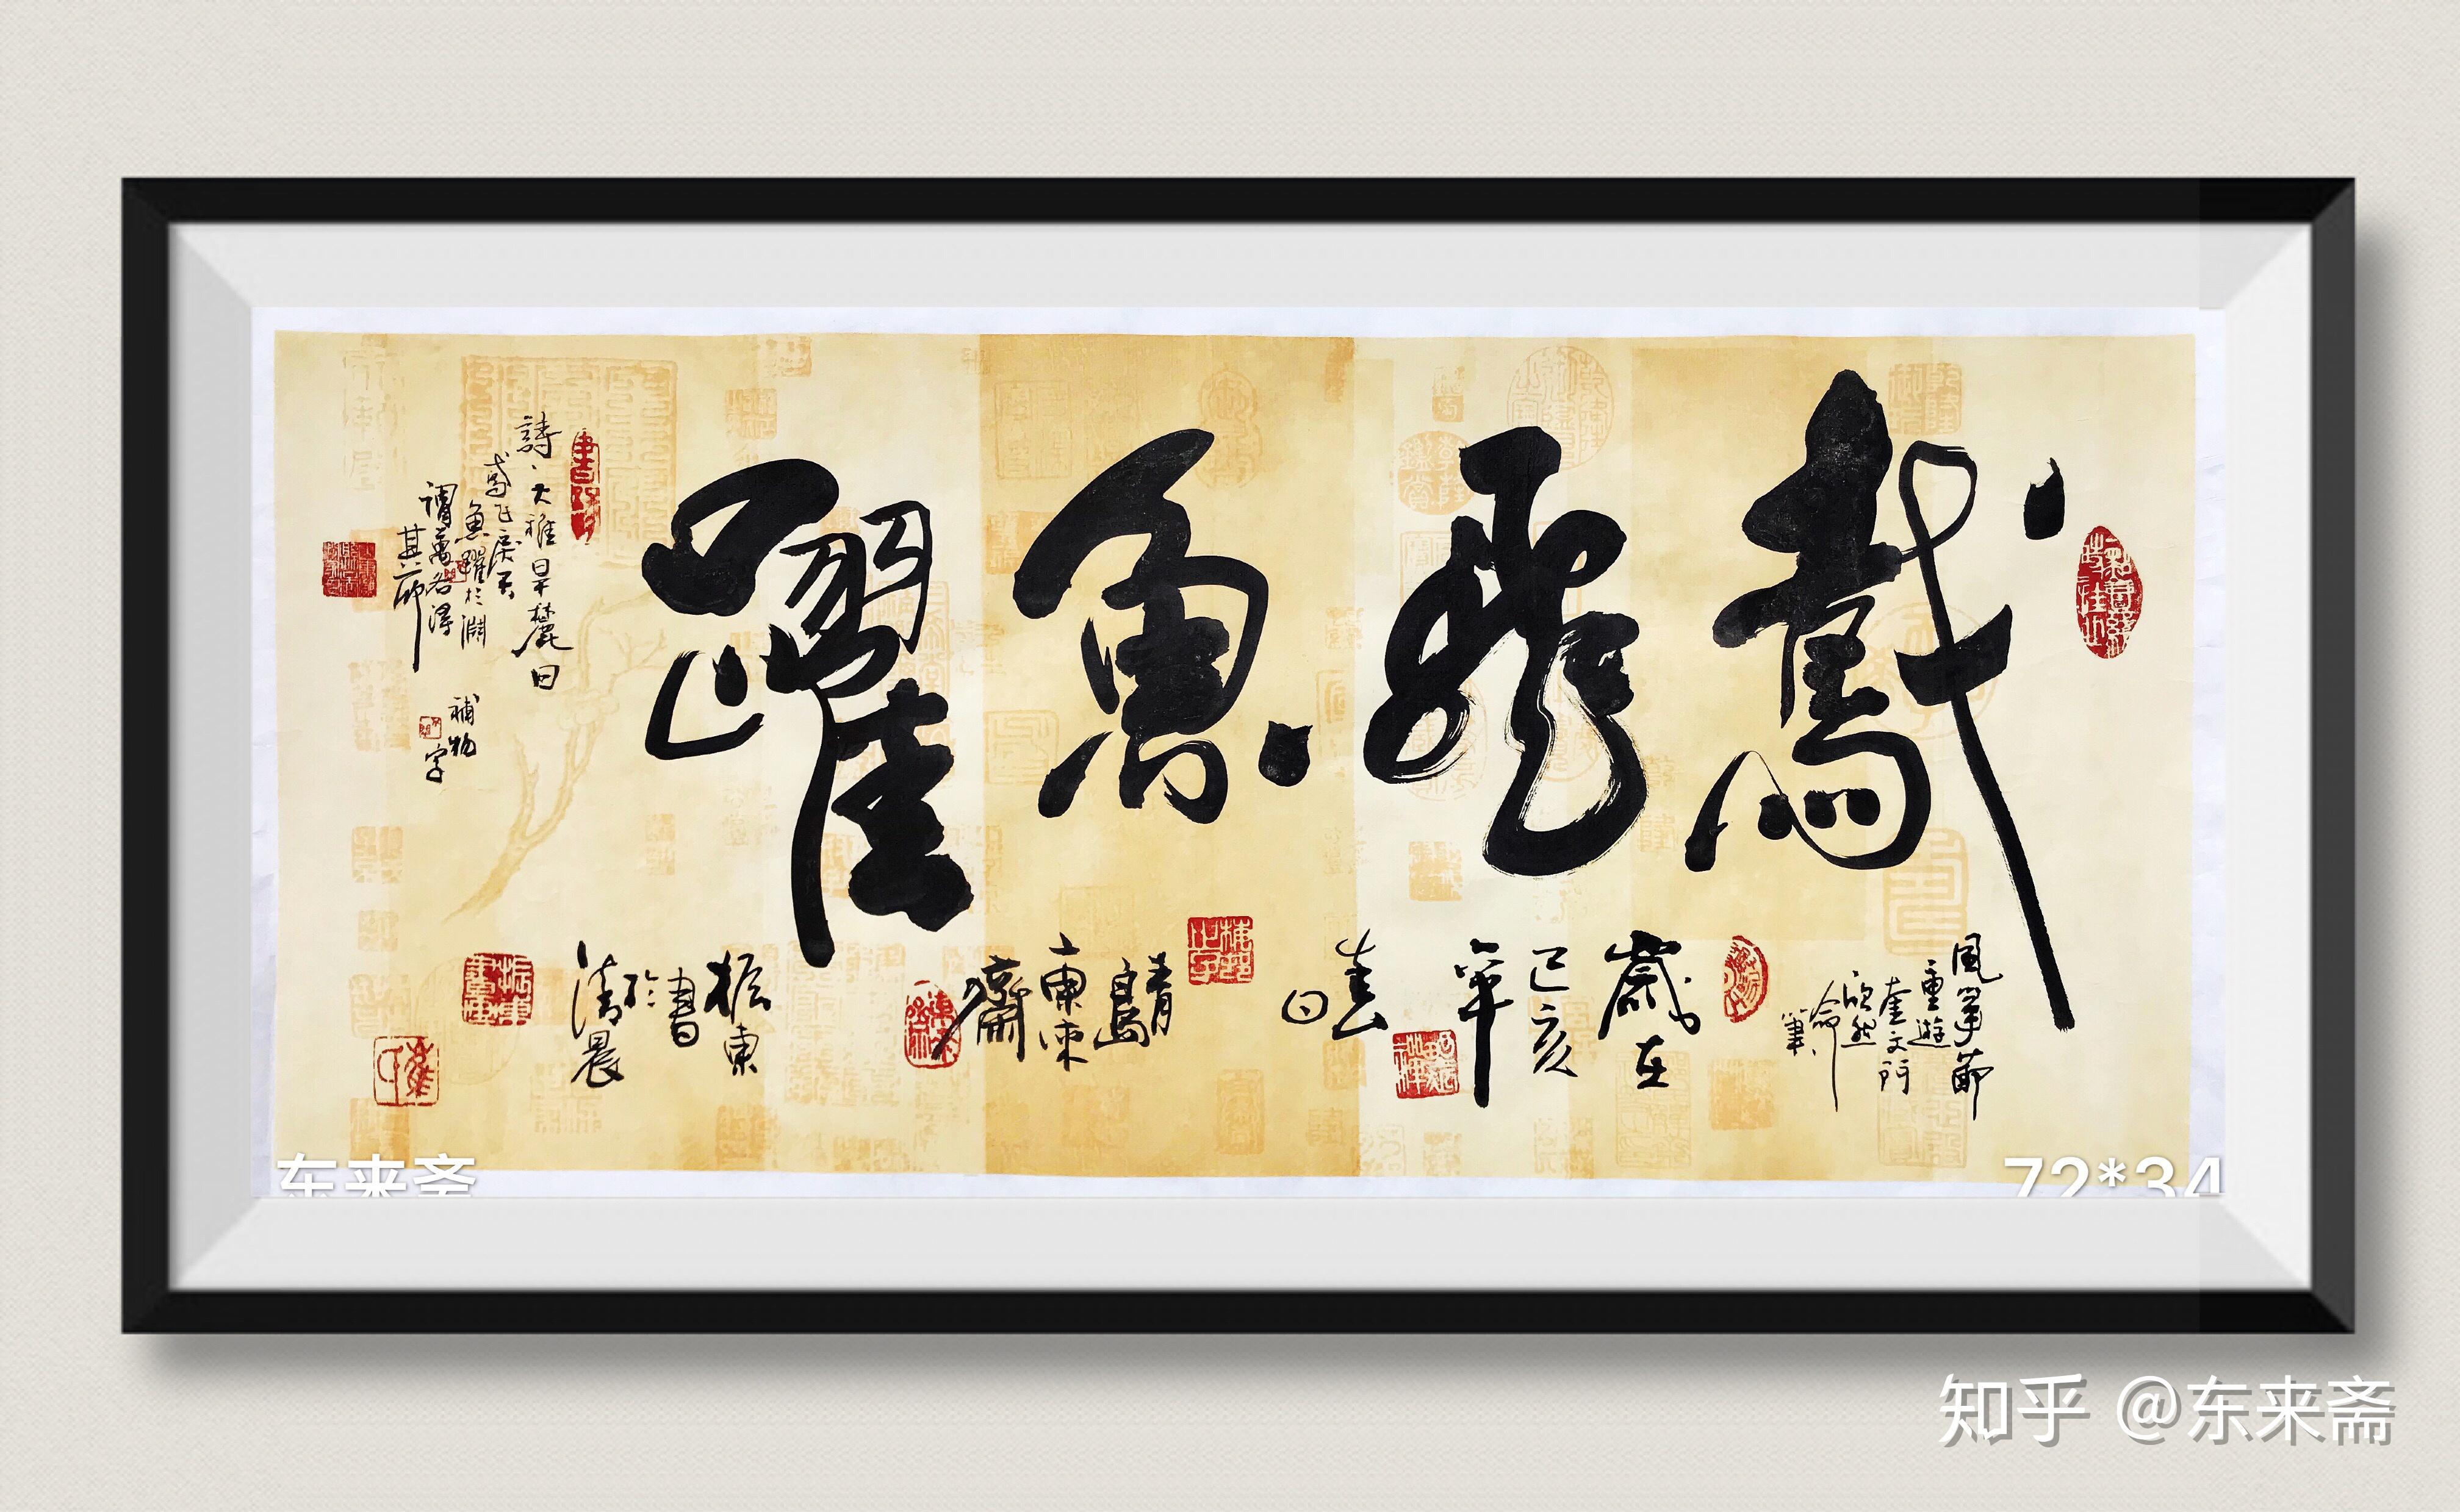 鳶飛魚躍
風箏節
重遊
奎文門
欣然
命
筆
歲在
己亥
年
春
日
靑島
東來
齋
振東
書
於
清晨
詩、大雅旱麓曰
鳶飛戾天
魚躍於淵
謂萬名得
其所
補物
字
东来斋
72*34
知乎 @东来斋